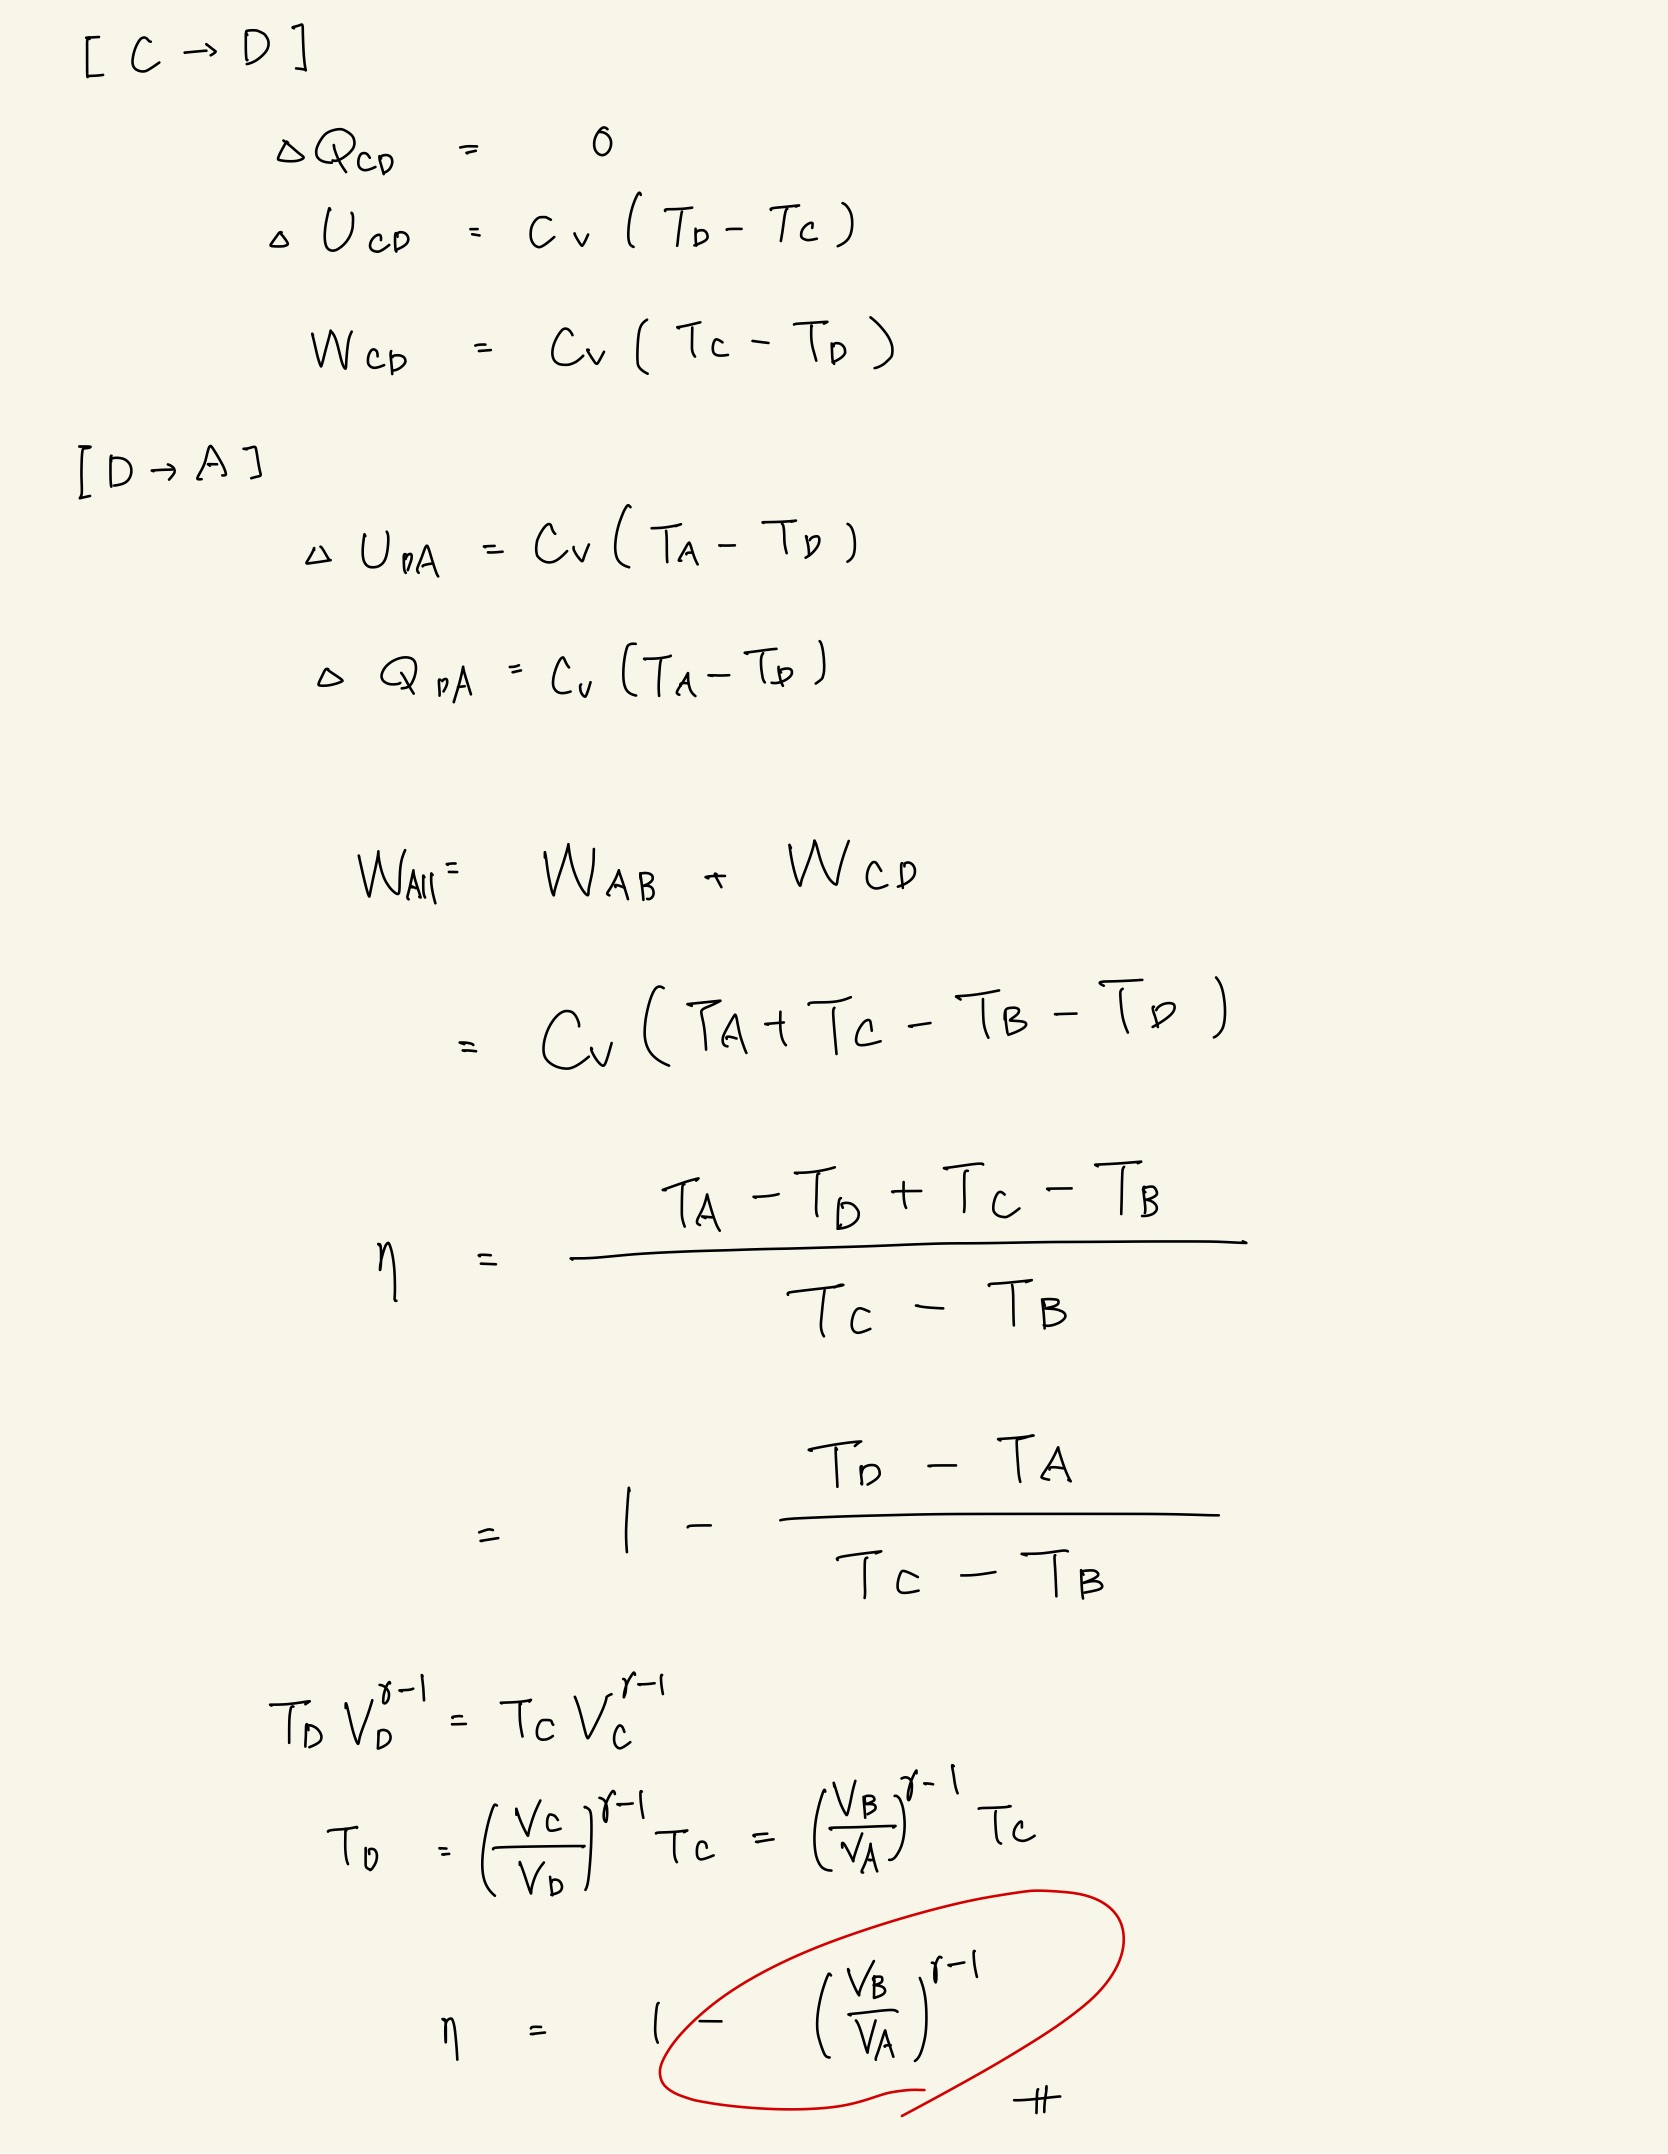 [ C → D ]
△Q_CD = 0
△U_CD = C_V ( T_D - T_C )
W_CD = C_V ( T_C - T_D )
[ D → A ]
△U_DA = C_V ( T_A - T_D )
△Q_DA = C_V ( T_A - T_D )
W_All = W_AB + W_CD
= C_V ( T_A + T_C - T_B - T_D )
η = (T_A - T_D + T_C - T_B) / (T_C - T_B)
= 1 - (T_D - T_A) / (T_C - T_B)
T_D V_D^(γ-1) = T_C V_C^(γ-1)
T_D = (V_C / V_D)^(γ-1) T_C = (V_B / V_A)^(γ-1) T_C
η = 1 - (V_B / V_A)^(γ-1) #